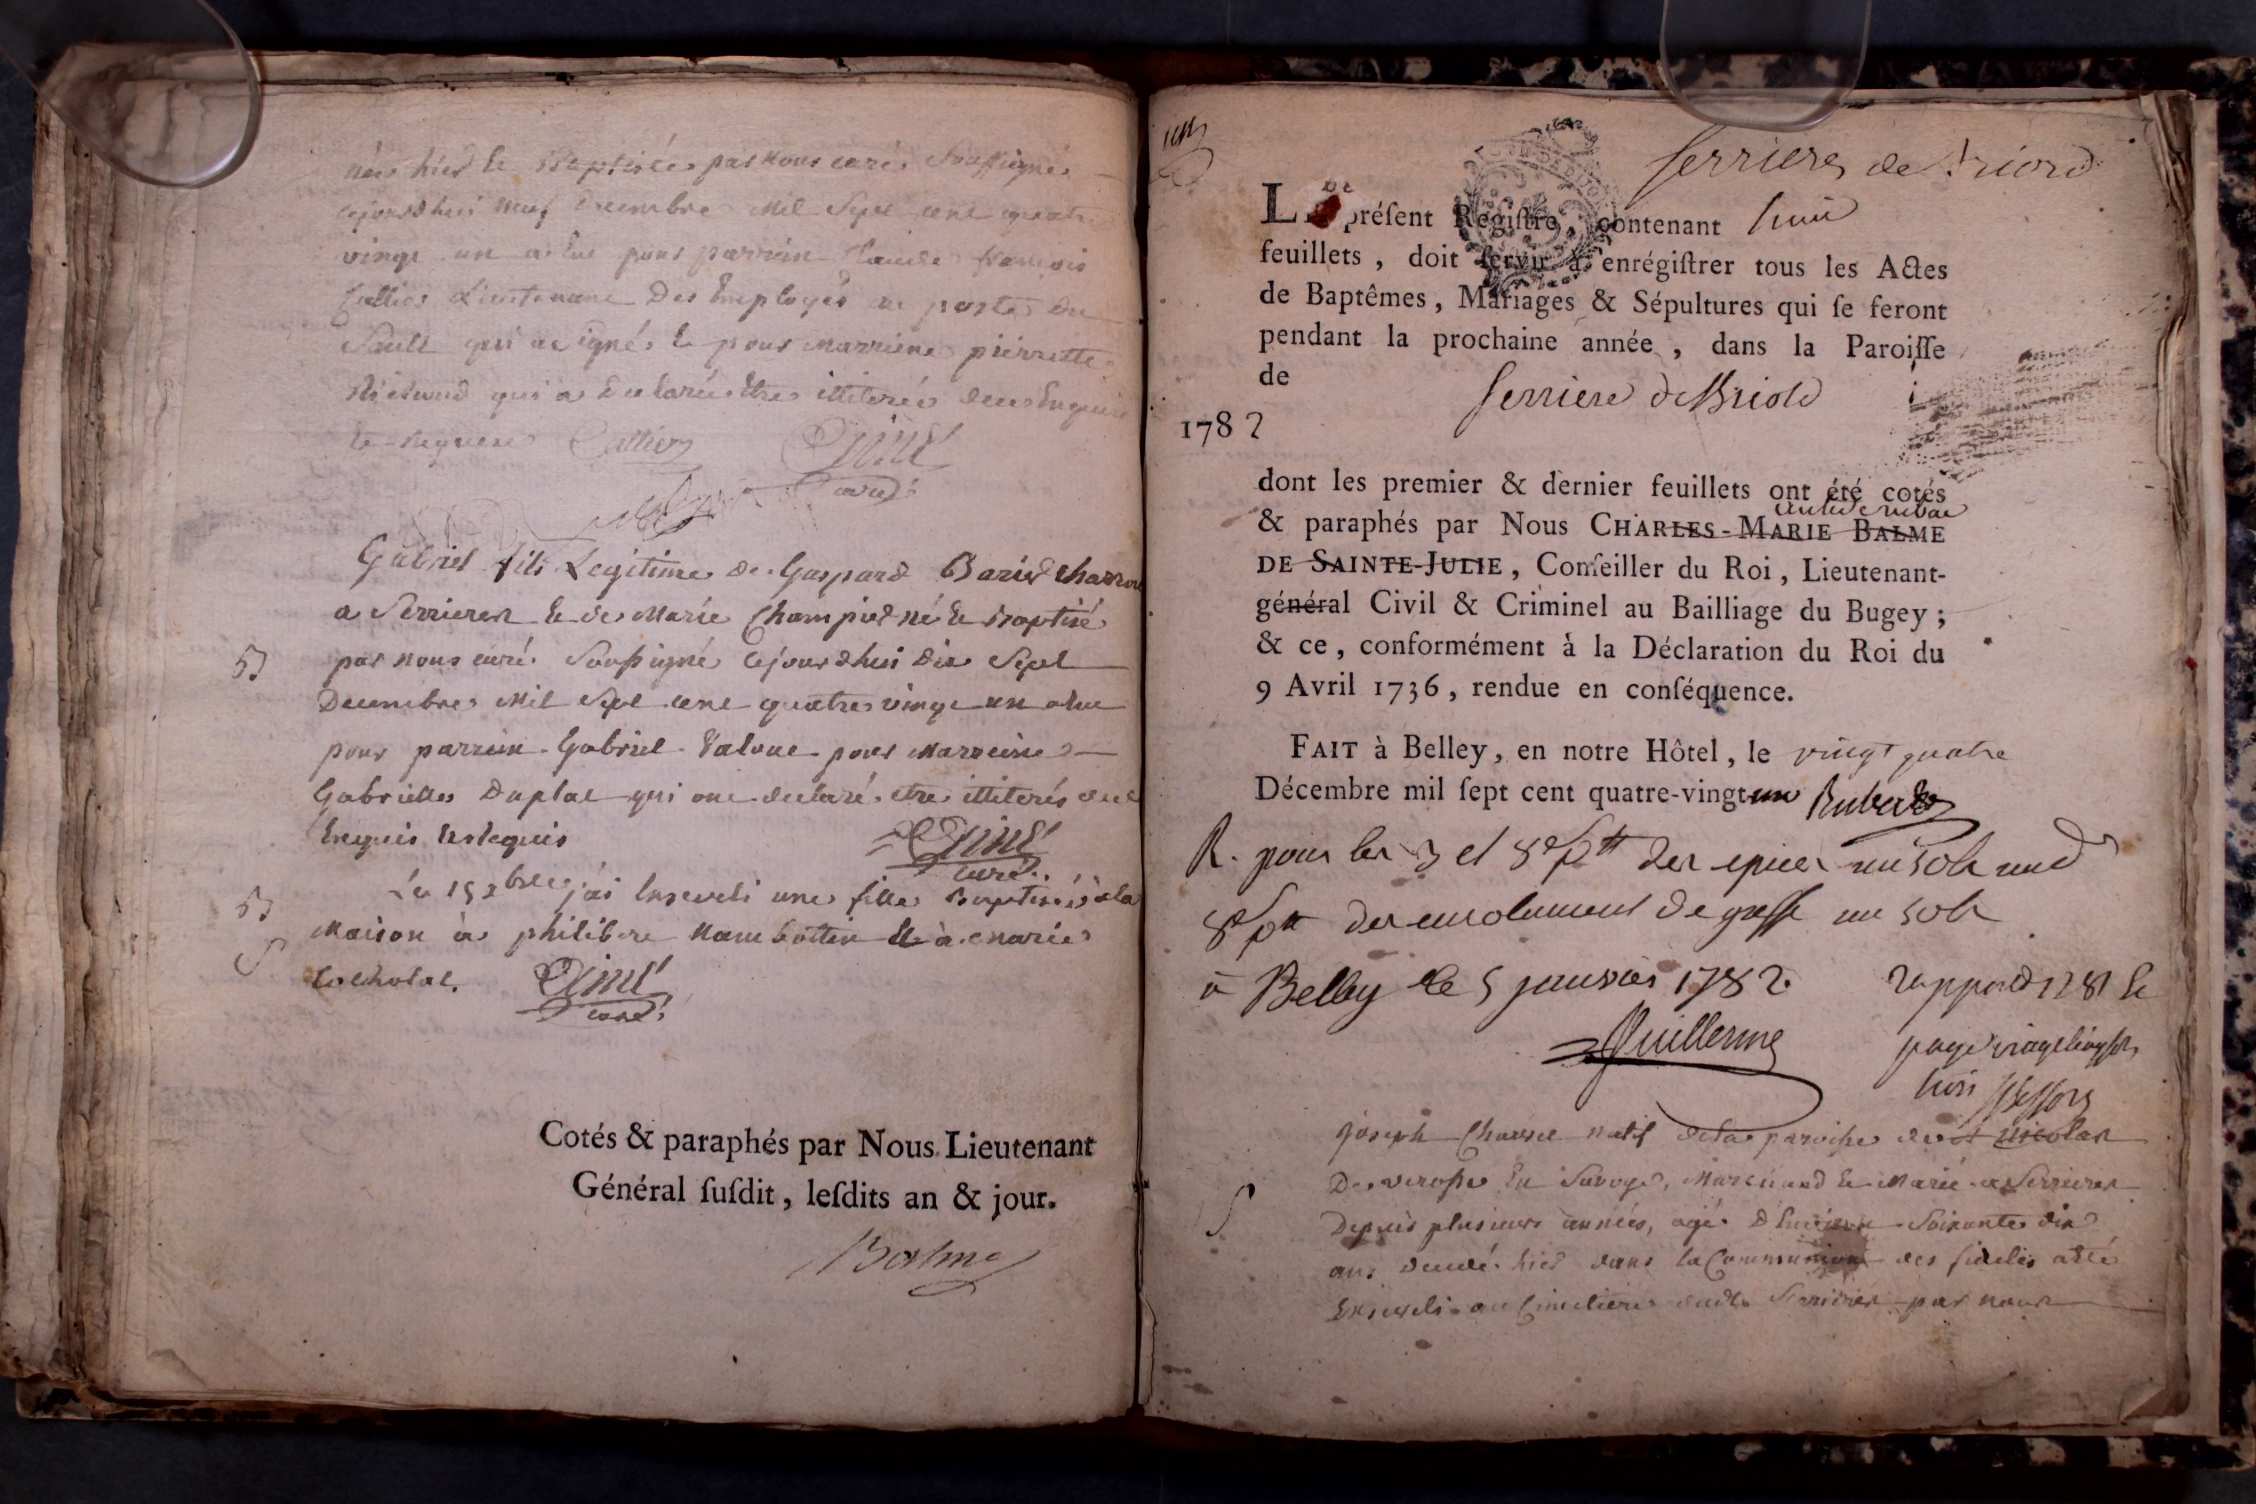 née hier & Baptisée par nous curé soussigné
cejourdhui neuf Decembre mil Sept cent quatre
vingt un a eu pour parrein Claude françois
Lieutenant Des Employés au poste du
Sault qui a signé & pour marreine pierrette
qui a declaré etre illiterée de ce Enquise
& requise
Aimé
curé
Gabriel fils Legitime de Gaspard Baried charron
a Serrieres & de Marie Champied né & Baptisé
par nous curé Soussigné cejourdhui dix Sept
Decembre Mil Sept cent quatre vingt un a eu
pour parrein Gabriel pour Marreine
Gabrielle Duplat qui ont declaré etre illiterés de ce
Enquis & requis
Aimé
curé
Le 15 xbre j'ai Enseveli une fille Baptisée à la
Maison à philibert & à marie
Aimé
curé
Cotés & paraphés par Nous Lieutenant
Général ſuſdit, leſdits an & jour.
Balme
Serrieres de Briord
Le préſent Regiſtre, contenant huit
feuillets, doit ſervir à enrégiſtrer tous les Actes
de Baptêmes, Mariages & Sépultures qui ſe feront
pendant la prochaine année, dans la Paroiſſe
de Serriere de Briord
1782
dont les premier & dernier feuillets ont été cotés
& paraphés par Nous CHARLES-MARIE BALME
DE SAINTE-JULIE, Conſeiller du Roi, Lieutenant-
général Civil & Criminel au Bailliage du Bugey ;
& ce, conformément à la Déclaration du Roi du
9 Avril 1736, rendue en conſéquence.
FAIT à Belley, en notre Hôtel, le vingt quatre
Décembre mil ſept cent quatre-vingt un
R. pour les 3 et 8 s p tt des epices un sols
8 s p tt des emolument de greffe un sols
a Belley le 5 janvier 1782.
Guillerme
joseph natif de la paroisse de St nicolas
De verosse En Savoye, Marchand & Marié a Serrieres
Depuis plusieurs années, agé d'Environ Soixante dix
ans decedé hier dans la Communion des fideles a eté
Enseveli au Cimetiere dudt Serrieres par nous